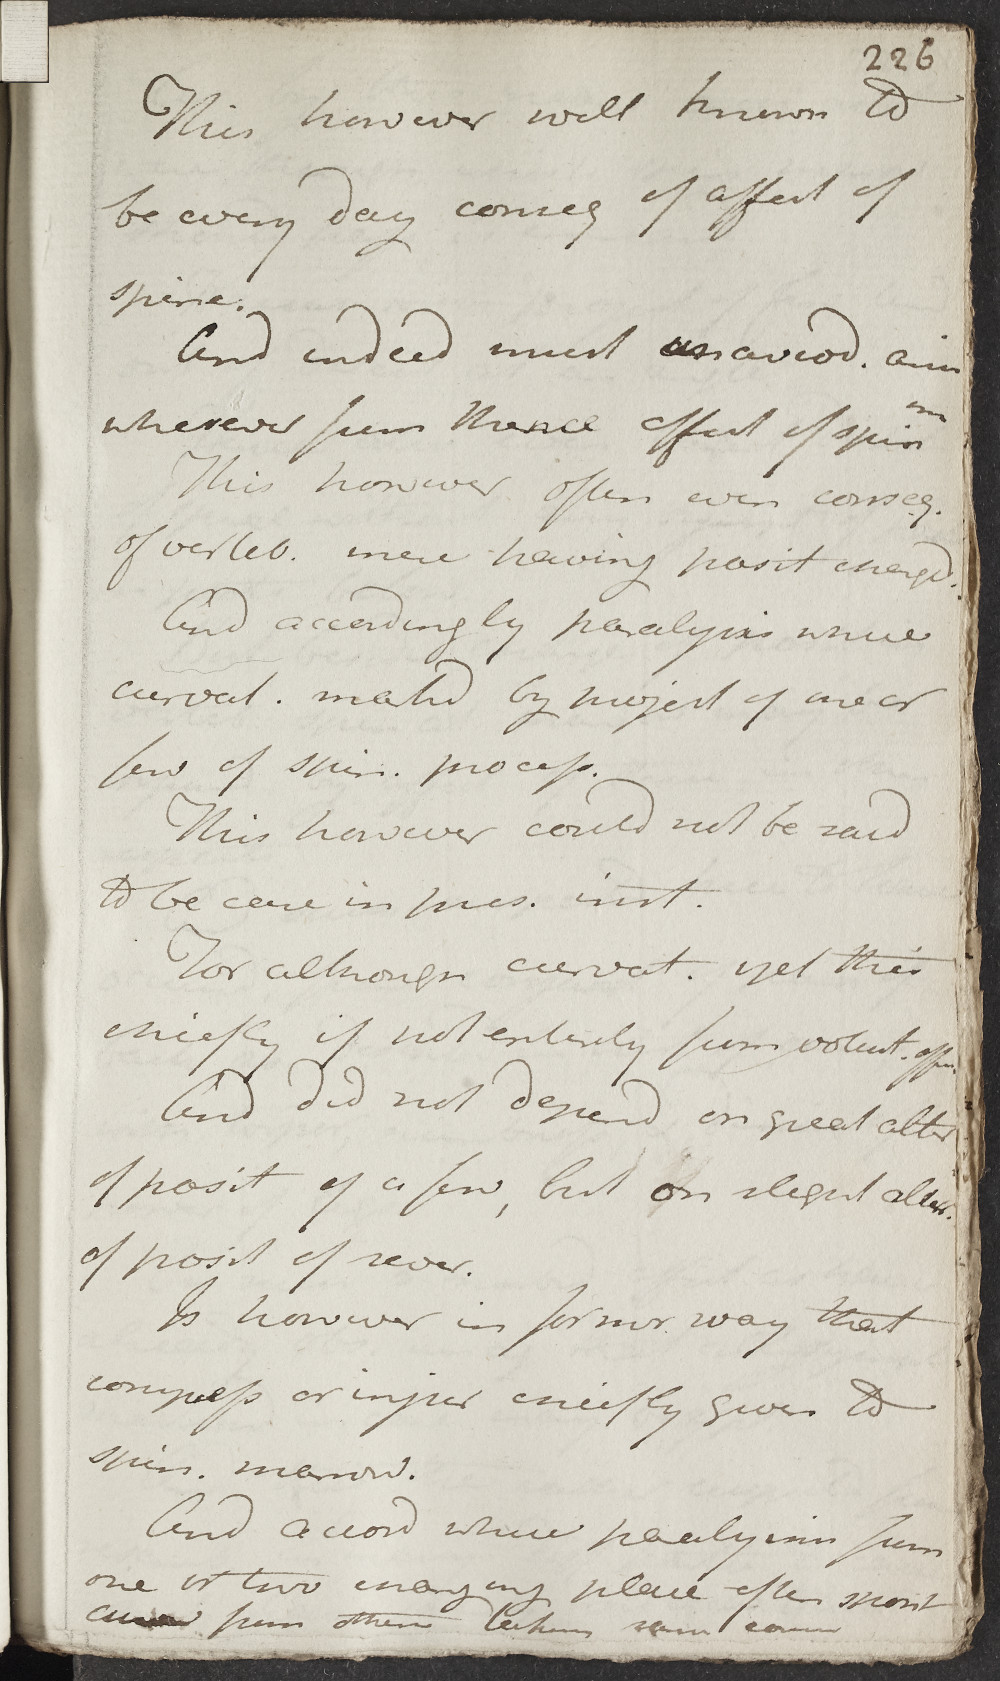 226
This however well known to
be every day conseq of affect of
spine.
And indeed must unavoid.
wherever from thence affect of spin m
This however often even conseq.
of verteb. mere having posit changd.
And accordingly paralysis where
curvat. matkd by project of one or
few of spin. process.
This however could not be said
to be case in pres. inst.
For although curvat. yet this
chiefly if not entirely from
And did not depend on great alter
of posit of a few, but on slight alter.
of posit of sever.
Is however in former way that
compress or injur chiefly given to
spin. marrow.
And accord where from
one or two changing place often
from other